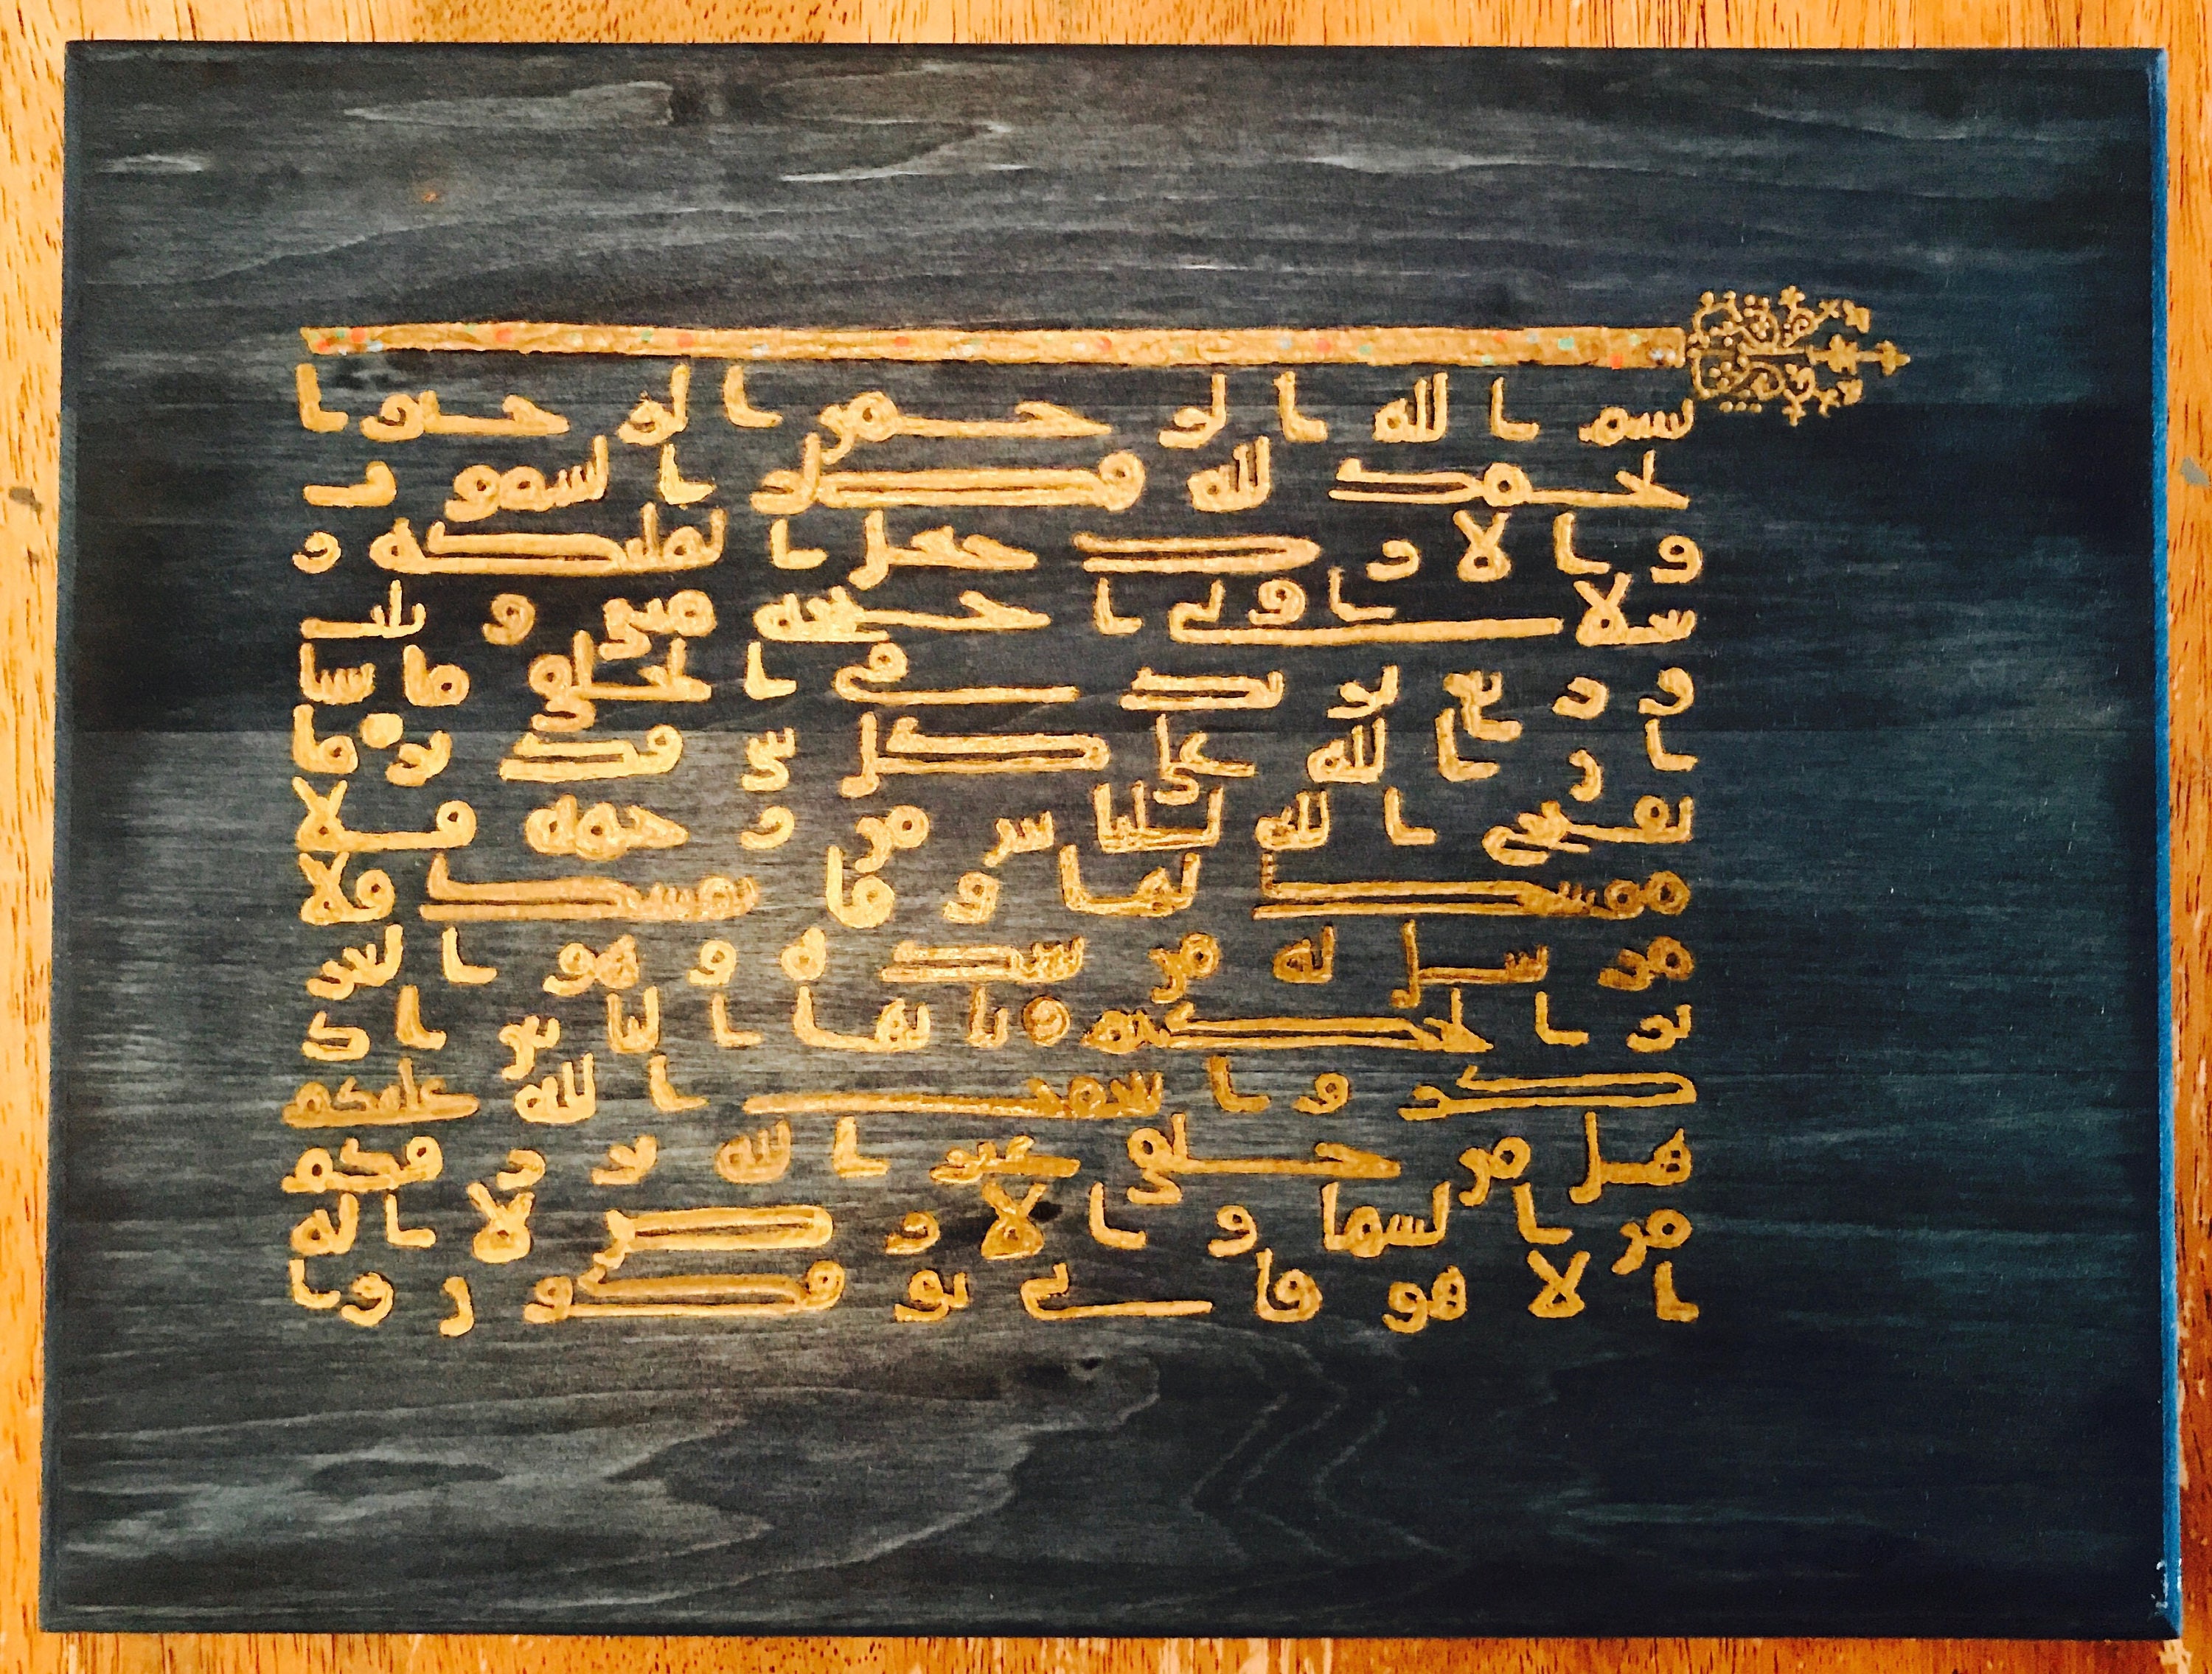 بسم الله الرحمن الرحيم ا
لحمد لله فطر السموت
والارض جعل الملئكة ر
سلا اولى اجنحة مثنى وثلث
وربع يزيد فى الخلق ما يشا
ان الله على كل شى قدير ما
يفتح الله للناس من رحمة فلا
ممسك لها وما يمسك فلا
مرسل له من بعده وهو العز
يز الحكيم يايها الناس ا ذ
كروا نعمت الله عليكم
هل من خلق غير الله يرزقكم
من السما والارض لا اله
الا هو فانى توفكون وا